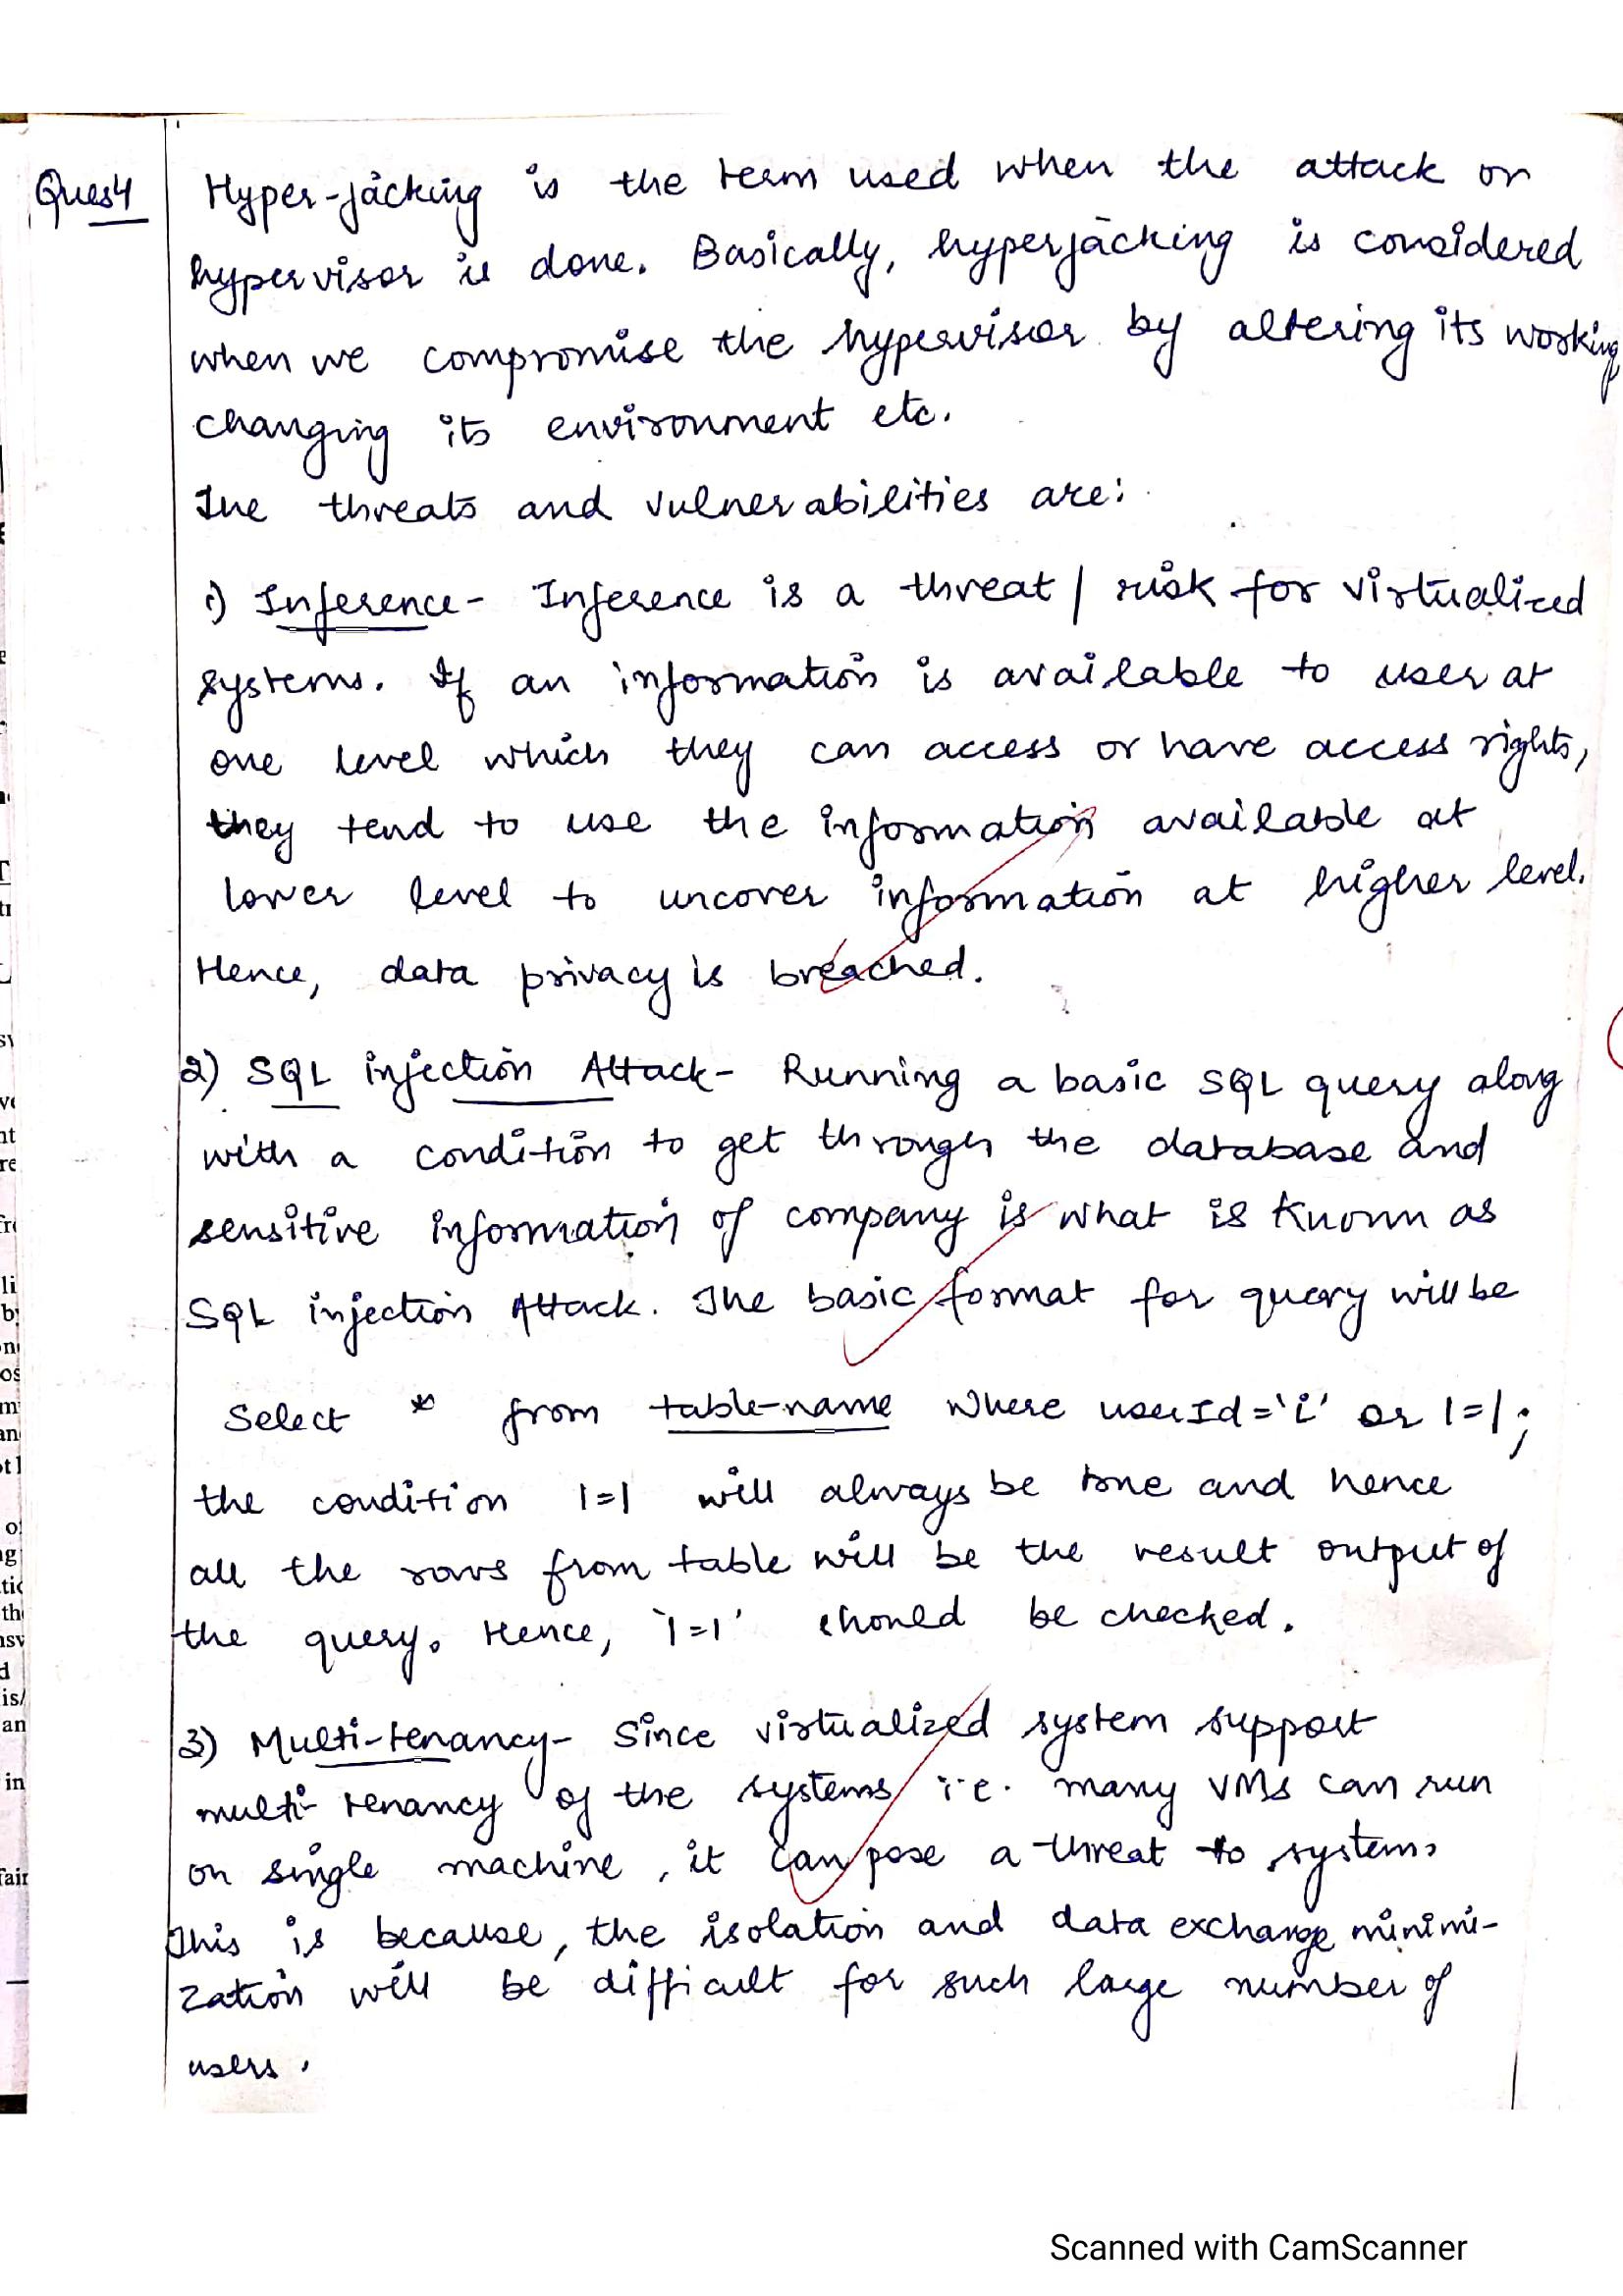 Ques4
Hyper-jacking is the term used when the attack on
hypervisor is done. Basically, hyperjacking is considered
when we compromise the hypervisor by altering its working
changing its environment etc.
The threats and vulnerabilities are:
1) Inference- Inference is a threat / risk for virtualized
systems. If an information is available to user at
one level which they can access or have access rights,
they tend to use the information available at
lower level to uncover information at higher level.
Hence, data privacy is breached.
2) SQL injection Attack- Running a basic SQL query along
with a condition to get through the database and
sensitive information of company is what is known as
SQL injection Attack. The basic format for query will be
Select * from table-name where userId='i' or 1=1;
the condition 1=1 will always be true and hence
all the rows from table will be the result output of
the query. Hence, '1=1' should be checked.
3) Multi-tenancy- Since virtualized system support
multi-tenancy of the systems i.e. many VMs can run
on single machine, it can pose a threat to systems
This is because, the isolation and data exchange minimi-
zation will be difficult for such large number of
users.
Scanned with CamScanner